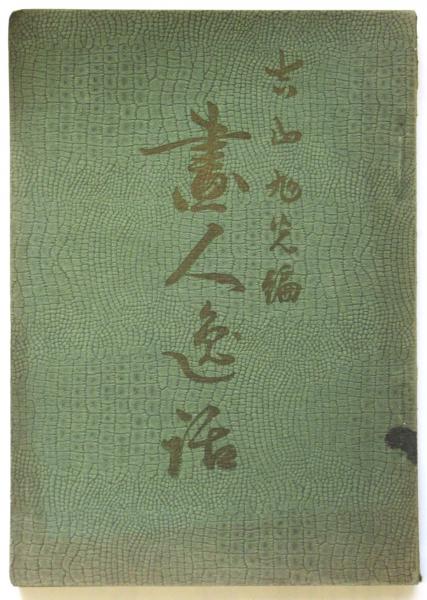 吉山旭光編
畫人逸話